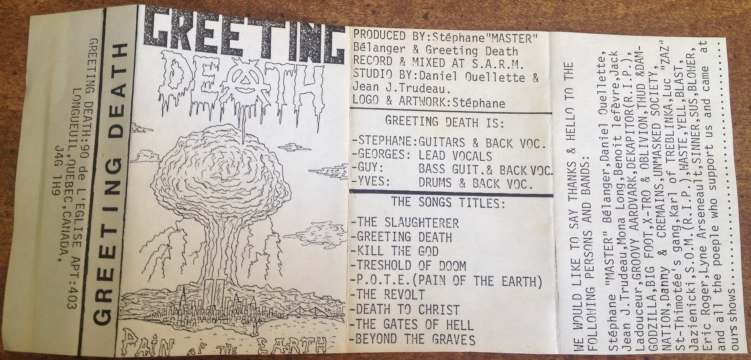 GREETING DEATH:90 de L'EGLISE APT:403
LONGUEUIL,QUEBEC,CANADA,
J4G 1H9
GREETING DEATH
GREETING
DEATH
PAIN OF THE EARTH
PRODUCED BY:Stéphane"MASTER"
Bélanger & Greeting Death
RECORD & MIXED AT S.A.R.M.
STUDIO BY:Daniel Ouellette &
Jean J.Trudeau.
LOGO & ARTWORK:Stéphane
GREETING DEATH IS:
-STEPHANE:GUITARS & BACK VOC.
-GEORGES: LEAD VOCALS
-GUY: BASS GUIT.& BACK VOC.
-YVES: DRUMS & BACK VOC.
THE SONGS TITLES:
-THE SLAUGHTERER
-GREETING DEATH
-KILL THE GOD
-TRESHOLD OF DOOM
-P.O.T.E.(PAIN OF THE EARTH)
-THE REVOLT
-DEATH TO CHRIST
-THE GATES OF HELL
-BEYOND THE GRAVES
WE WOULD LIKE TO SAY THANKS & HELLO TO THE
FOLLOWING PERSONS AND BANDS:
Stéphane "MASTER" Bélanger,Daniel Ouellette,
Jean J.Trudeau,Mona Long,Benoit lefèvre,Jack
Ladouceur,GROOVY AARDVARK,DEKAPITOR(R.I.P.),
GODZILLA,BIG FOOT,X-TRO & OBLIVION,THUD &DAM-
NATION,Danny & CREMAINS,UNMASKED SOCIETY,
St-Thimotée's gang,Karl of TREBLINKA,Luc "ZAZ"
Jazienicki,S.O.M.(R.I.P.),HASTE,YELL,BLAST,
Eric Roger,Lyne Arseneault,SINNER,SUS,BLOHER,
and all the poeple who support us and came at
ours shows....................